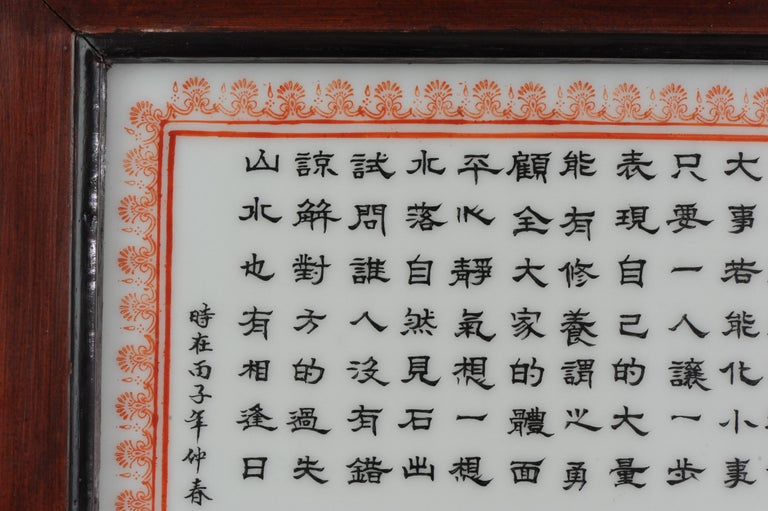 大事若能化小事
只要一人讓一步
表現自己的大量
能有修養謂之勇
顧全大家的體面
平心靜氣想一想
水落自然見石出
試問誰人沒有錯
諒解對方的過失
山水也有相逢日
時在丙子年仲春